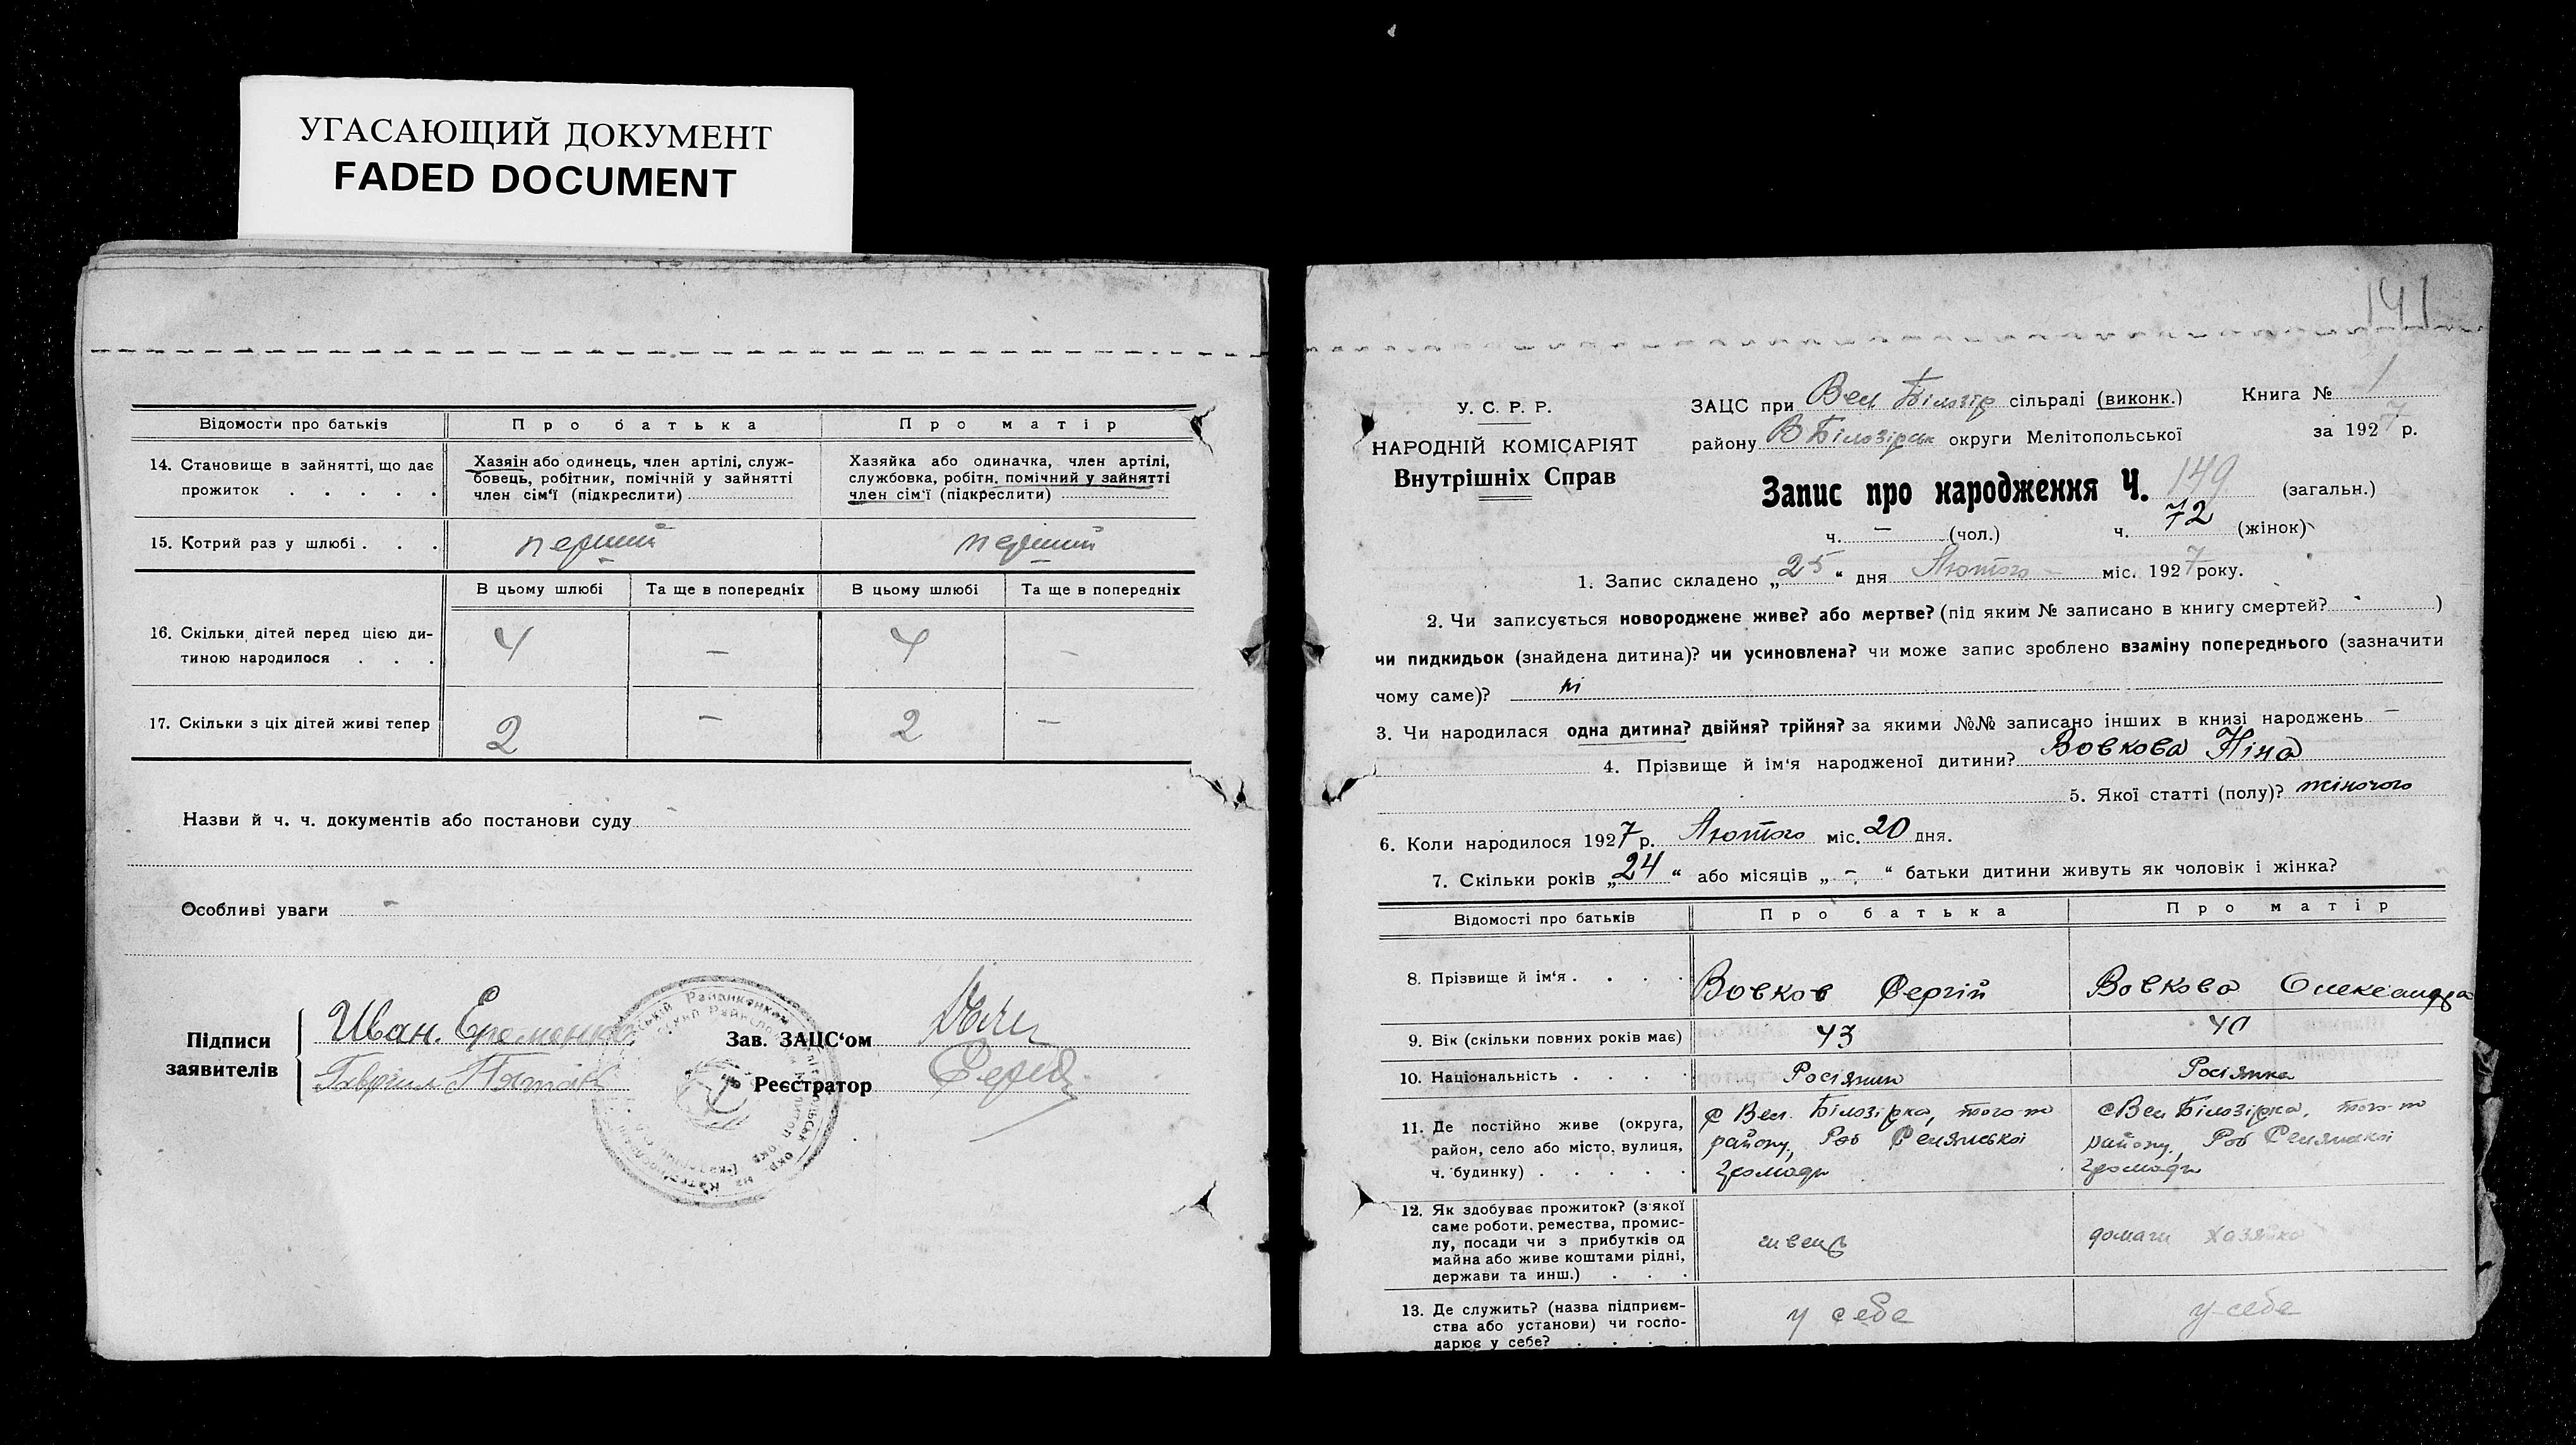 УГАСАЮЩИЙ ДОКУМЕНТ
FADED DOCUMENT
Відомости про батьків
Про батька
Про матір
14. Становище в зайнятті, що дає
прожиток . . . . .
Хазяін або одинець, член артілі, служ-
бовець, робітник, помічній у зайнятті
член сім'ї (підкреслити)
Хазяйка або одиначка, член артілі,
службовка, робітн. помічний у зайнятті
член сім'ї (підкреслити)
15. Котрий раз у шлюбі . . .
перший
перший
В цьому шлюбі
Та ще в попередніх
В цьому шлюбі
Та ще в попередніх
16. Скільки дітей перед цією ди-
тиною народилося . . .
4 — 4 —
17. Скільки з ціх дітей живі тепер
2 — 2 —
Назви й ч. ч. документів або постанови суду
Особливі уваги —
Підписи
заявителів
Иван. Еременко
Гаврил
Зав. ЗАЦС'ом
Реєстратор
141
У. С. Р. Р.
НАРОДНІЙ КОМІСАРІЯТ
Внутрішніх Справ
ЗАЦС при Вел Білозір сільраді (виконк.)
Книга № 1
району В Білозірськ округи Мелітопольської
за 1927 р.
Запис про народження Ч. 149 (загальн.)
ч. — (чол.) ч. 72 (жінок)
1. Запис складено „25“ дня Лютого — міс. 1927 року.
2. Чи записується новороджене живе? або мертве? (під яким № записано в книгу смертей? )
чи пидкидьок (знайдена дитина)? чи усиновлена? чи може запис зроблено взаміну попереднього (зазначити
чому саме)? ні
3. Чи народилася одна дитина? двійня? трійня? за якими №№ записано інших в книзі народжень —
4. Прізвище й ім'я народженої дитини? Вовкова Ніна
5. Якої статті (полу)? жіночого
6. Коли народилося 1927 р. Лютого міс. 20 дня.
7. Скільки років „24“ або місяців „ – “ батьки дитини живуть як чоловік і жінка?
Відомості про батьків
Про батька
Про матір
8. Прізвище й ім'я . . . .
Вовков Сергій
Вовкова Олександра
9. Вік (скільки повних років має)
43
40
10. Національність . . . .
Росіянин
Росіянка
11. Де постійно живе (округа,
район, село або місто, вулиця,
ч. будинку) . . . . .
с Вел. Білозірка, того-ж
району, Роб Селянської
громади
с Вел Білозірка, того-ж
району, Роб Селянскої
громади
12. Як здобуває прожиток? (з якої
саме роботи, ремества, промис-
лу, посади чи з прибутків од
майна або живе коштами рідні,
держави та инш.) . . .
швець
домаш хазяйка
13. Де служить? (назва підприєм-
ства або установи) чи госпо-
дарює у себе? . . . .
у себе
у себе